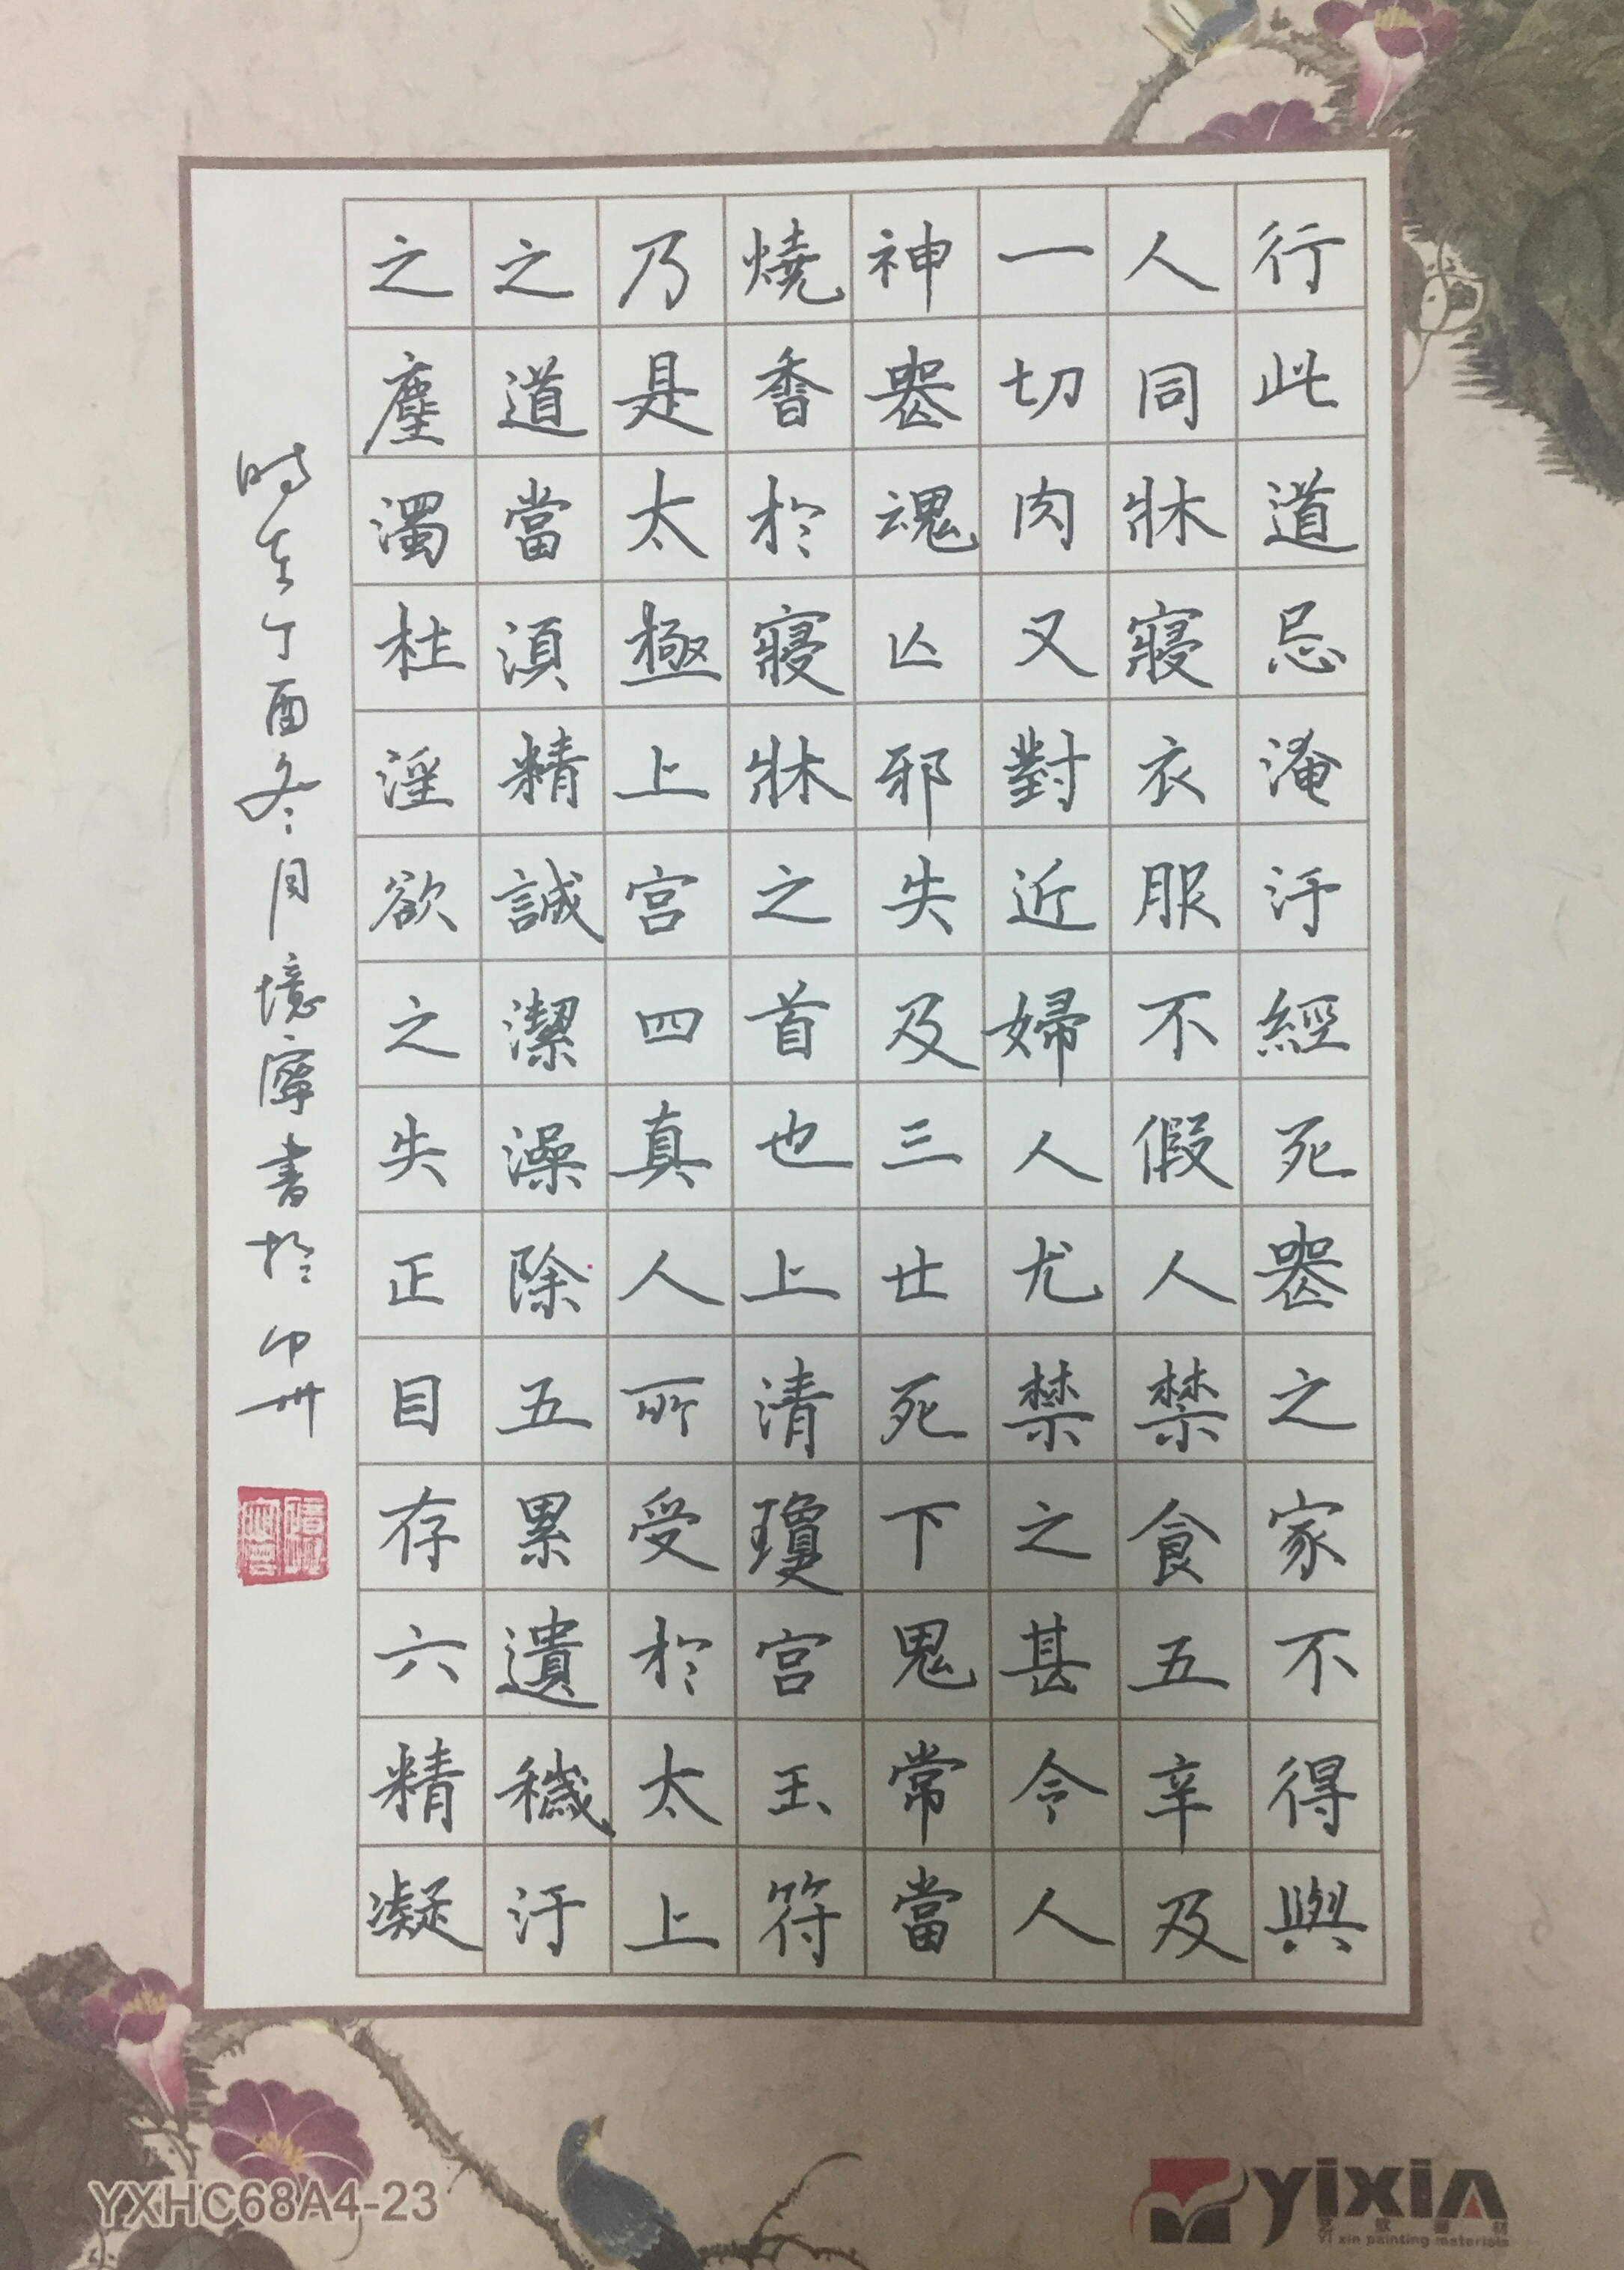 行此道忌淹汙經死喪之家不得與
人同牀寢衣服不假人禁食五辛及
一切肉又對近婦人尤禁之甚令人
神喪魂亾邪失及三世死下鬼常當
燒香於寢牀之首也上清瓊宮玉符
乃是太極上宮四真人所受於太上
之道當須精誠潔澡除五累遺穢汙
之塵濁杜淫欲之失正目存六精凝
時在丁酉冬月境寧書於中州
YXHC68A4-23
yixin
艺欣画材
Yi xin painting materials